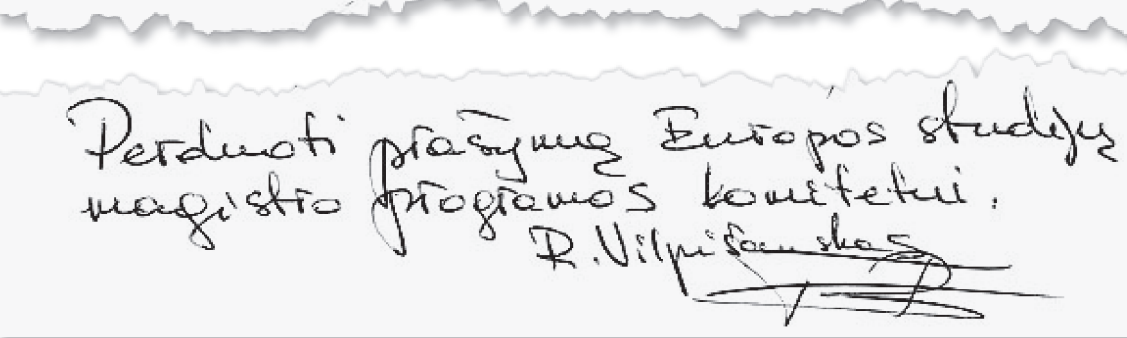 Perduoti prašymą Europos studijų
magistro programos komitetui.
R. Vilpišauskas